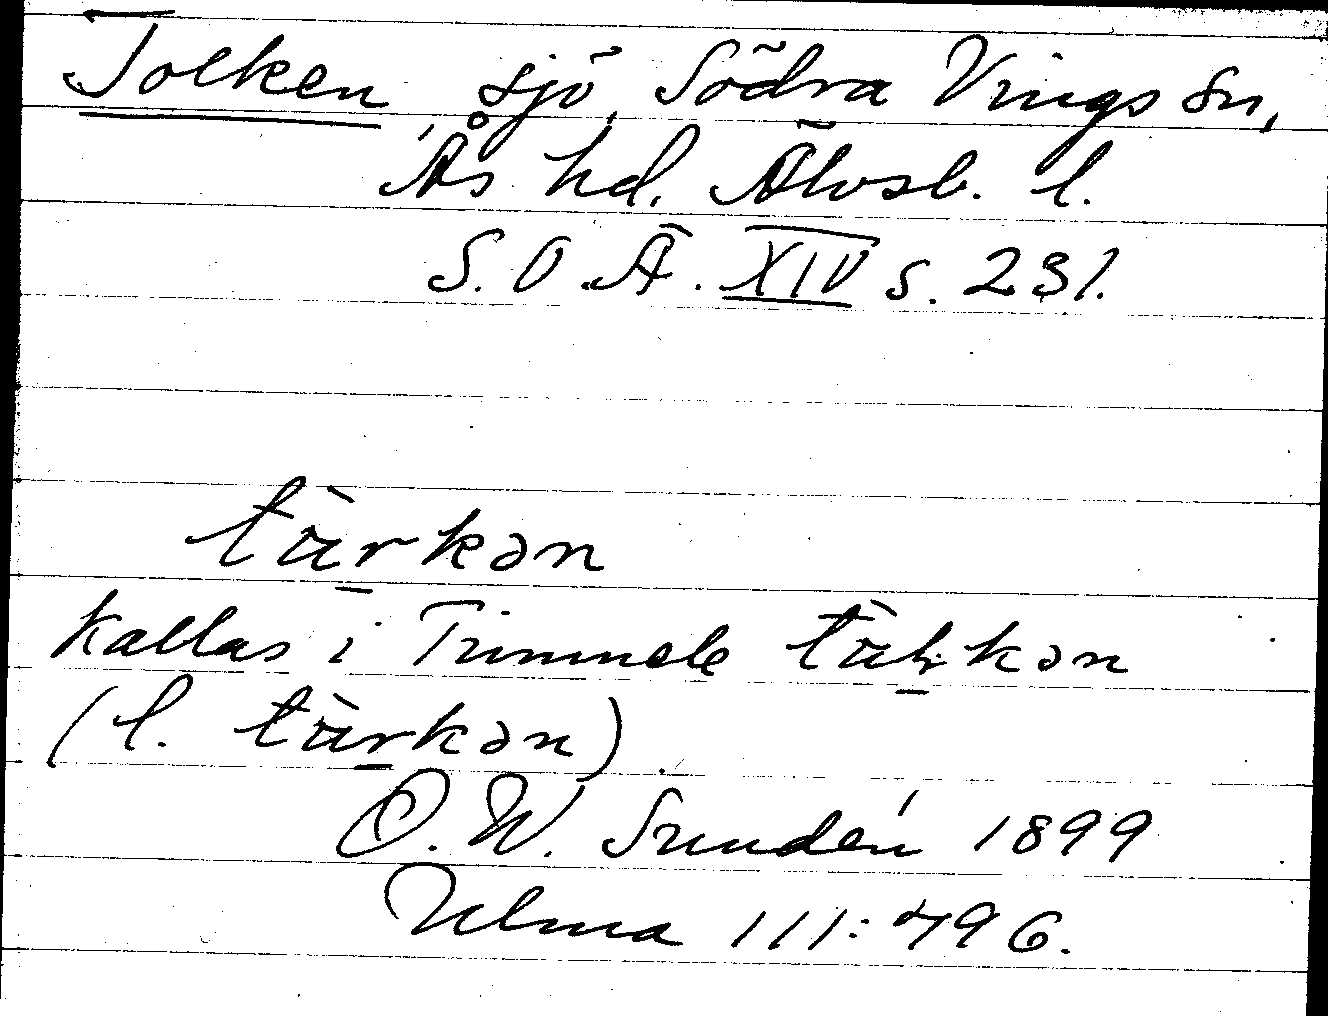 Tolken, sjö, Södra Vings sn,
Ås hd. Älvsb. l.
S. O. Ä. XIV s. 231.
tàrkən
kallas i Timmele tàhkən
(l. tàrkən)
O. W. Sundén 1899
Ulma 111:496.